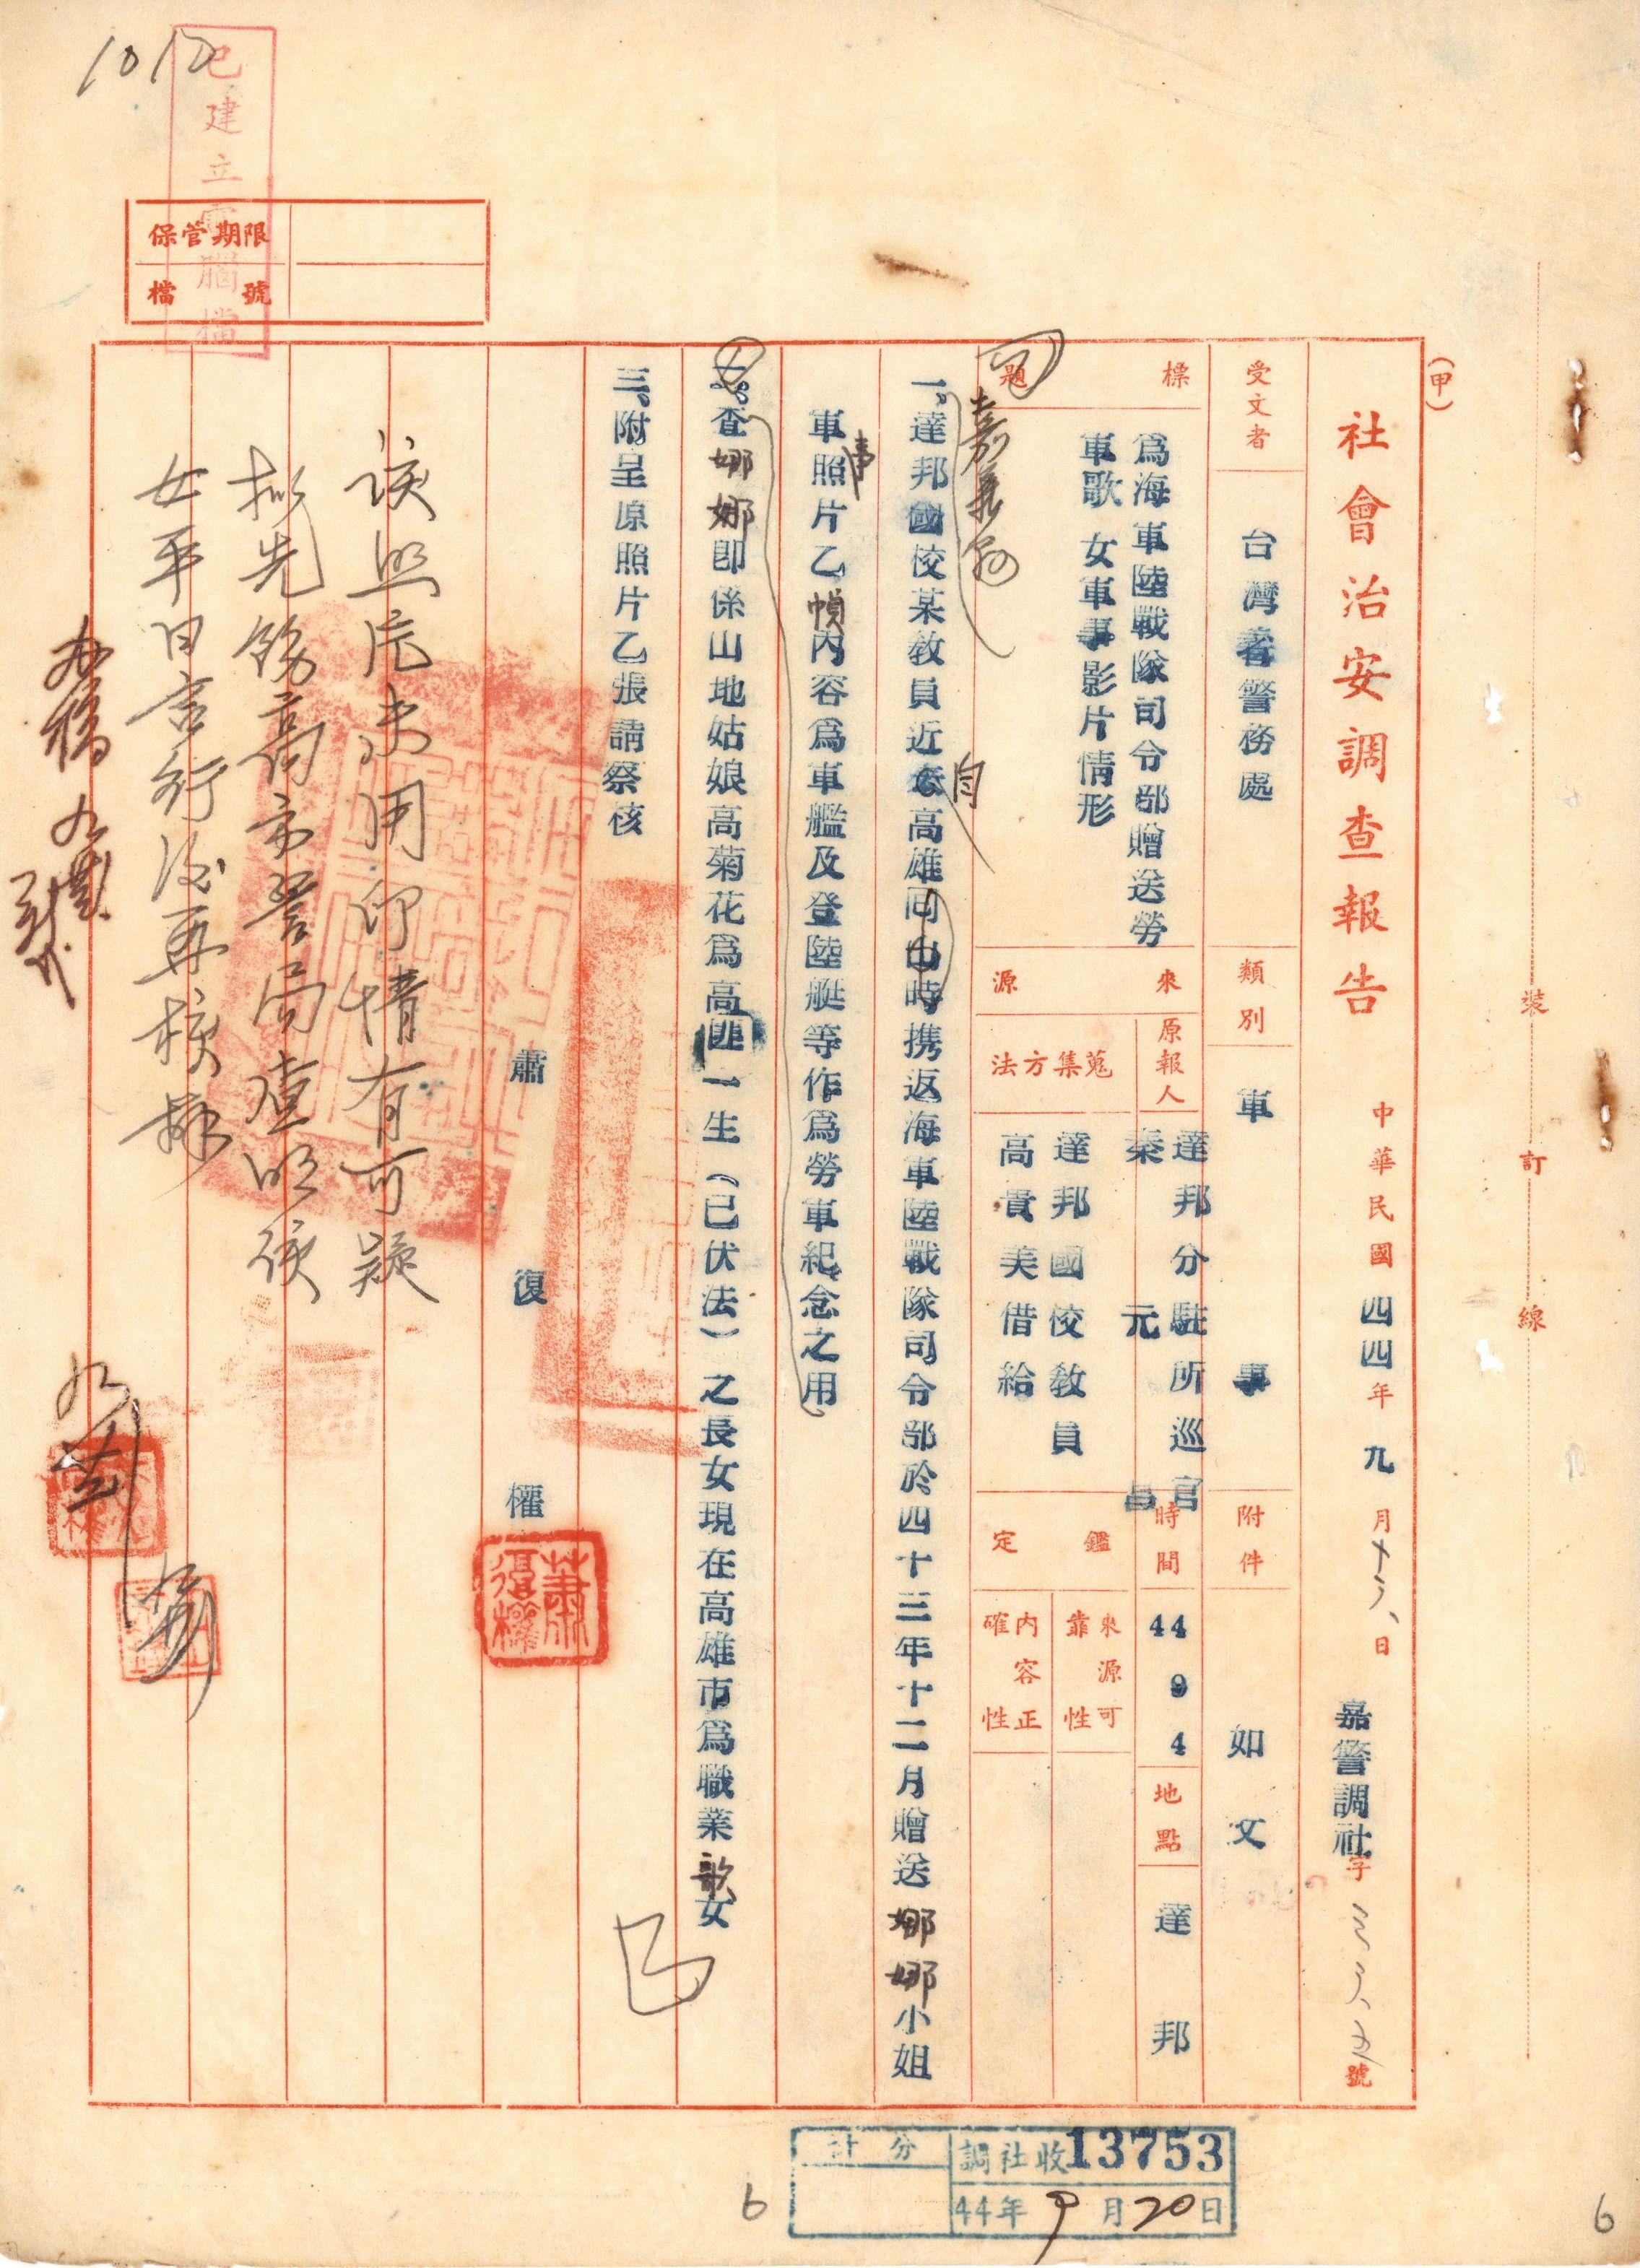 1012
已建立電腦檔
保管期限
檔號
(甲)
裝訂線
社會治安調查報告
中華民國四四年九月十六日
嘉警調社字三六五號
受文者
台灣省警務處
類別
軍事
附件
如文
標題
為海軍陸戰隊司令部贈送勞
軍歌女軍事影片情形
來源
原報人
達邦分駐所巡官
秦元昌
蒐集方法
達邦國校教員
高貴美借給
時間
44 9 4
地點
達邦
鑑定
來源可靠性
內容正確性
嘉義縣
一、達邦國校某教員近自高雄回山時携返海軍陸戰隊司令部於四十三年十二月贈送娜娜小姐
軍事照片乙幀內容為軍艦及登陸艇等作為勞軍紀念之用
二、查娜娜即係山地姑娘高菊花為高匪一生（已伏法）之長女現在高雄市為職業歌女
三、附呈原照片乙張請察核
蕭復權
蕭復權
該照片未用印情有可疑
擬先飭高市警局查明該
女平日言行後再核辦
分計
調社收13753
44年9月20日
6
6